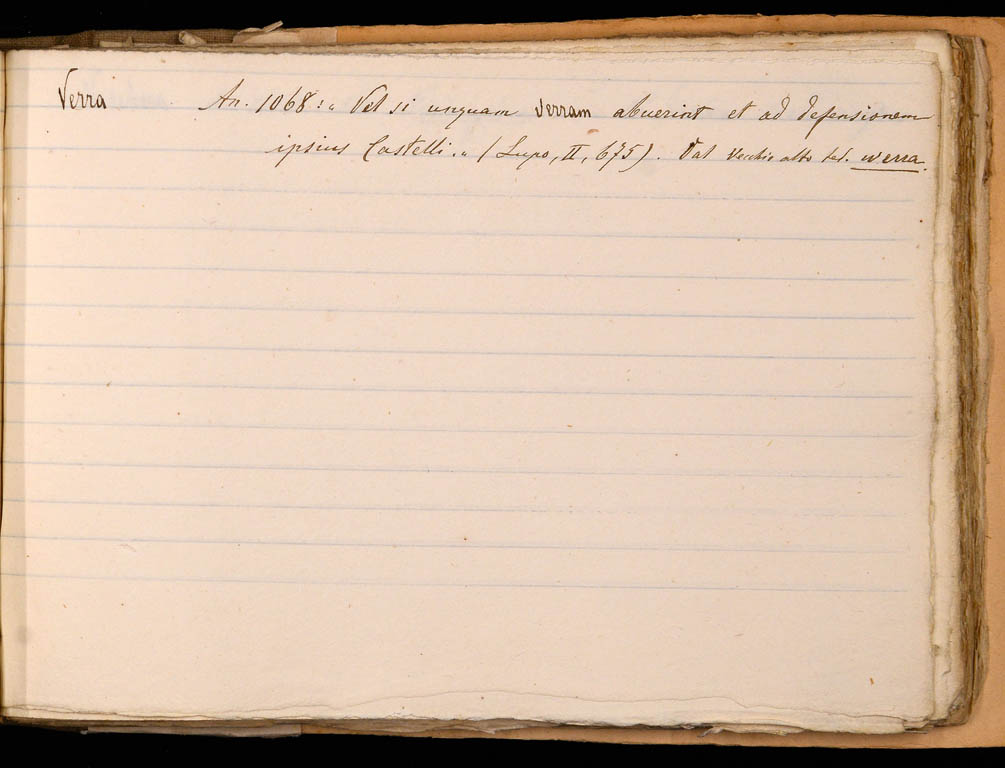 Verra An. 1068: „ Vel si unquam verram abuerint et ad defensionem
ipsius Castelli. „ (Lupo, II, 675). Dal vecchio alto ted. werra.